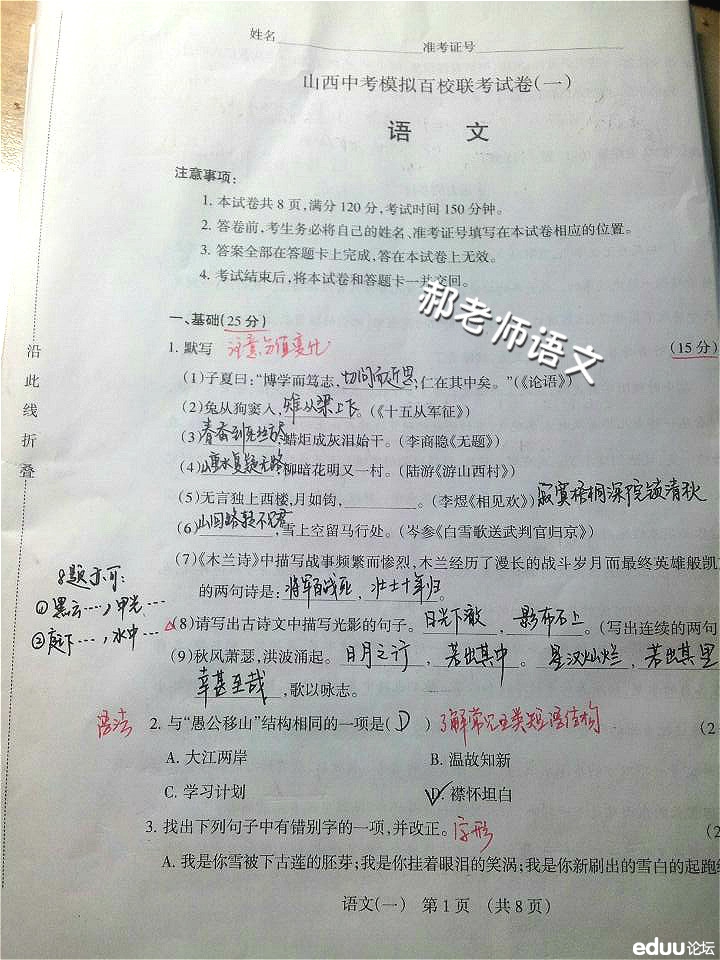 姓名 准考证号
山西中考模拟百校联考试卷(一)
语 文
注意事项:
1. 本试卷共8页,满分120分,考试时间150分钟。
2. 答卷前,考生务必将自己的姓名、准考证号填写在本试卷相应的位置。
3. 答案全部在答题卡上完成,答在本试卷上无效。
4. 考试结束后,将本试卷和答题卡一并交回。
郝老师语文
一、基础(25分)
1. 默写 注意分值变化 (15分)
(1)子夏曰:“博学而笃志,切问而近思;仁在其中矣。”(《论语》)
(2)兔从狗窦入,雉从梁上飞。(《十五从军征》)
(3)春蚕到死丝方尽,蜡炬成灰泪始干。(李商隐《无题》)
(4)山重水复疑无路,柳暗花明又一村。(陆游《游山西村》)
(5)无言独上西楼,月如钩,。(李煜《相见欢》)寂寞梧桐深院锁清秋
(6)山回路转不见君,雪上空留马行处。(岑参《白雪歌送武判官归京》)
(7)《木兰诗》中描写战事频繁而惨烈,木兰经历了漫长的战斗岁月而最终英雄般凯
的两句诗是:将军百战死,壮士十年归。
8题亦可:
①黑云……,甲光……
②庭下……,水中……
(8)请写出古诗文中描写光影的句子。日光下澈,影布石上。(写出连续的两句
(9)秋风萧瑟,洪波涌起。日月之行,若出其中。星汉灿烂,若出其里
幸甚至哉,歌以咏志。
语法 2. 与“愚公移山”结构相同的一项是(D)了解常见五类短语结构 (2
A. 大江两岸 B. 温故知新
C. 学习计划 D. 襟怀坦白
3. 找出下列句子中有错别字的一项,并改正。字形 (2
A. 我是你雪被下古莲的胚芽;我是你挂着眼泪的笑涡;我是你新刷出的雪白的起跑
语文(一) 第1页 (共8页)
沿此线折叠
eduu论坛